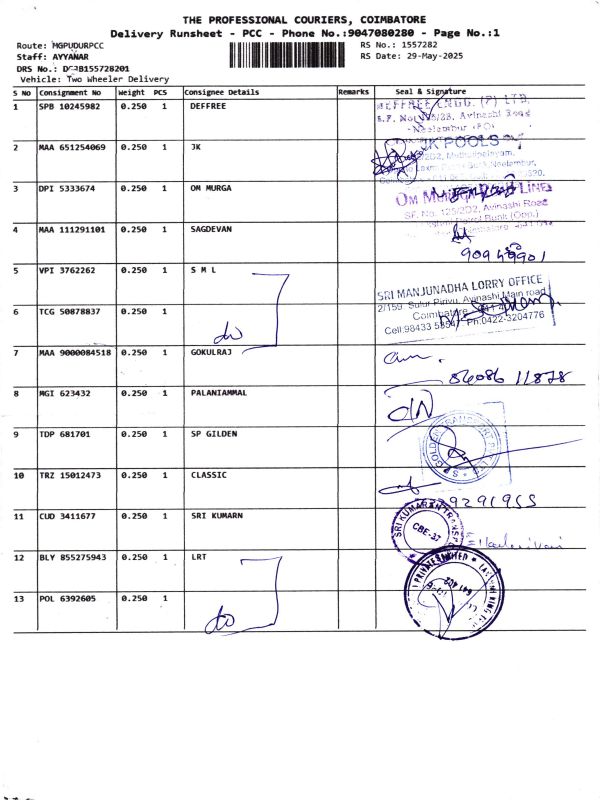 THE PROFESSIONAL COURIERS, COIMBATORE
Delivery Runsheet - PCC - Phone No.:9047080280 - Page No.:1
Route: MGPUDURPCC
RS No.: 1557282
Staff: AYYANAR
RS Date: 29-May-2025
DRS No.:
Vehicle: Two Wheeler Delivery
S No Consignment No Weight PCS Consignee Details Remarks Seal & Signature
1 SPB 10245982 0.250 1 DEFFREE
2 MAA 651254069 0.250 1 JK
JK POOLS
3 DPI 5333674 0.250 1 OM MURGA
SF. No. 125/2D2, Avinashi Road
4 MAA 111291101 0.250 1 SAGDEVAN
5 VPI 3762262 0.250 1 S M L
SRI MANJUNADHA LORRY OFFICE
2/159, Sulur Pirivu, Avinashi Main road
6 TCG 50878837 0.250 1 do
Coimbatore
Ph:0422-3204776
7 MAA 9000084518 0.250 1 GOKULRAJ
86086 11878
8 MGI 623432 0.250 1 PALANIAMMAL
9 TDP 681701 0.250 1 SP GILDEN
10 TRZ 15012473 0.250 1 CLASSIC
11 CUD 3411677 0.250 1 SRI KUMARN
SRI KUMARAN
CBE-37
12 BLY 855275943 0.250 1 LRT
PRIVATE LIMITED
13 POL 6392605 0.250 1 do